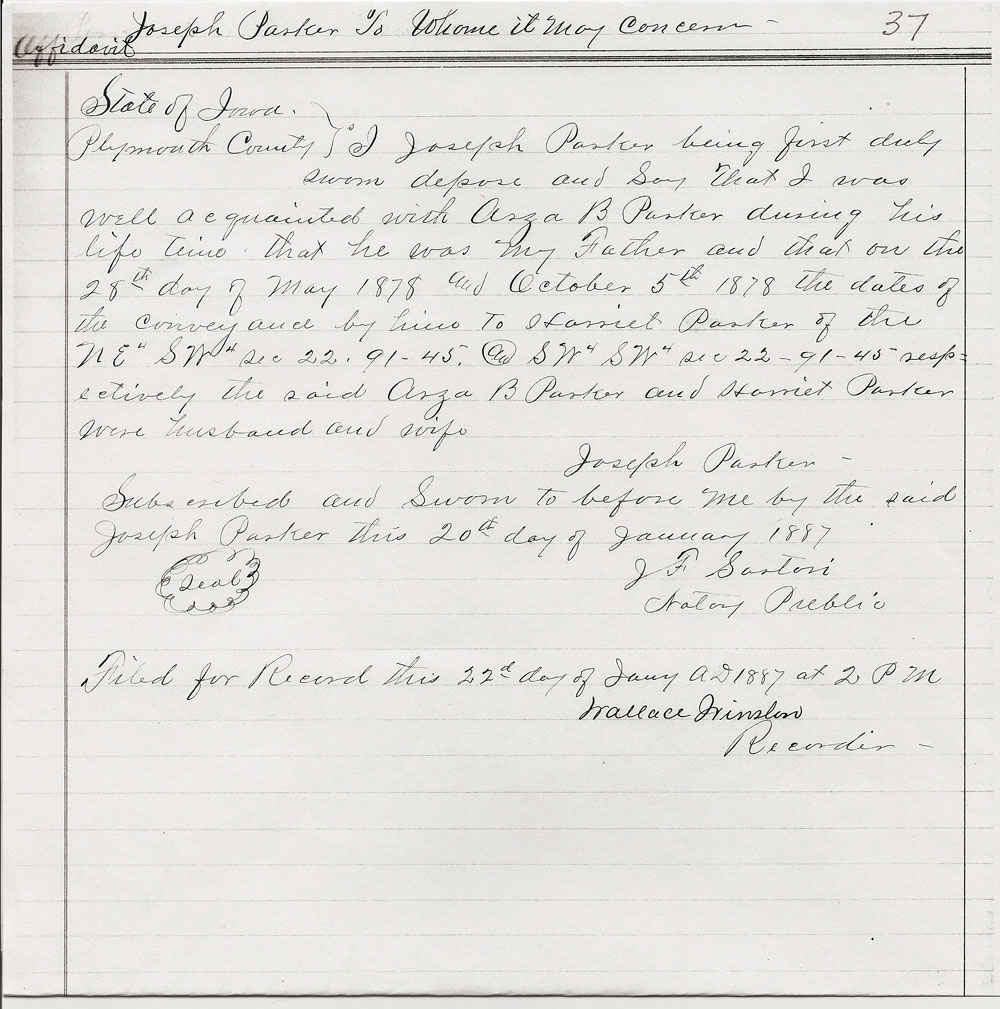 Joseph Parker To Whome it May Concern - 37
Affidavit
State of Iowa.
Plymouth County } SS I Joseph Parker being first duly
sworn depose and Say That I was
well acquainted with Arza B Parker during his
life time that he was my Father and that on the
28th day of May 1878 and October 5th 1878 the dates of
the conveyance by him To Harriet Parker of the
NE" SW" sec 22. 91-45. and SW" SW" sec 22-91-45 resp=
ectively the said Arza B Parker and Harriet Parker
were husband and wife
Joseph Parker -
Subscribed and Sworn to before me by the said
Joseph Parker this 20th day of January 1887
Seal
J F Sartori
Notary Public
Filed for Record this 22d day of Jany AD 1887 at 2 PM
Wallace Winslow
Recorder -